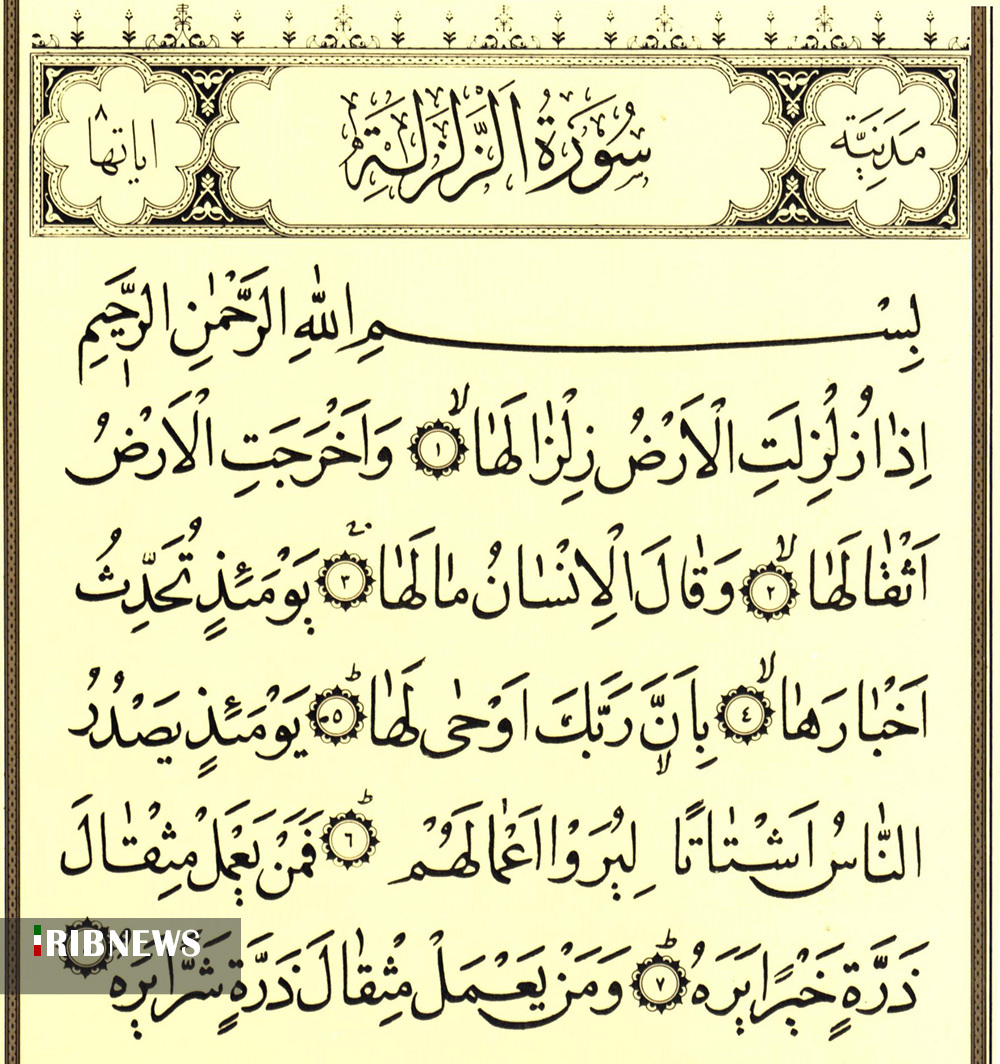 مَدَنِيَّة
سُورَةُ الزَّلْزَلَةِ
اياتها ٨
بِسْمِ اللهِ الرَّحْمٰنِ الرَّحِيمِ
اِذٰا زُلْزِلَتِ الْاَرْضُ زِلْزٰالَهٰا ۙ ١ وَاَخْرَجَتِ الْاَرْضُ
اَثْقٰالَهٰا ۙ ٢ وَقٰالَ الْاِنْسٰانُ مٰا لَهٰا ٣ يَوْمَئِذٍ تُحَدِّثُ
اَخْبٰارَهٰا ۙ ٤ بِاَنَّ رَبَّكَ اَوْحٰى لَهٰا ؕ ٥ يَوْمَئِذٍ يَصْدُرُ
النّٰاسُ اَشْتٰاتًا لِيُرَوْا اَعْمٰالَهُمْ ؕ ٦ فَمَنْ يَعْمَلْ مِثْقٰالَ
ذَرَّةٍ خَيْرًا يَرَهُ ؕ ٧ وَمَنْ يَعْمَلْ مِثْقٰالَ ذَرَّةٍ شَرًّا يَرَهُ
IRIBNEWS